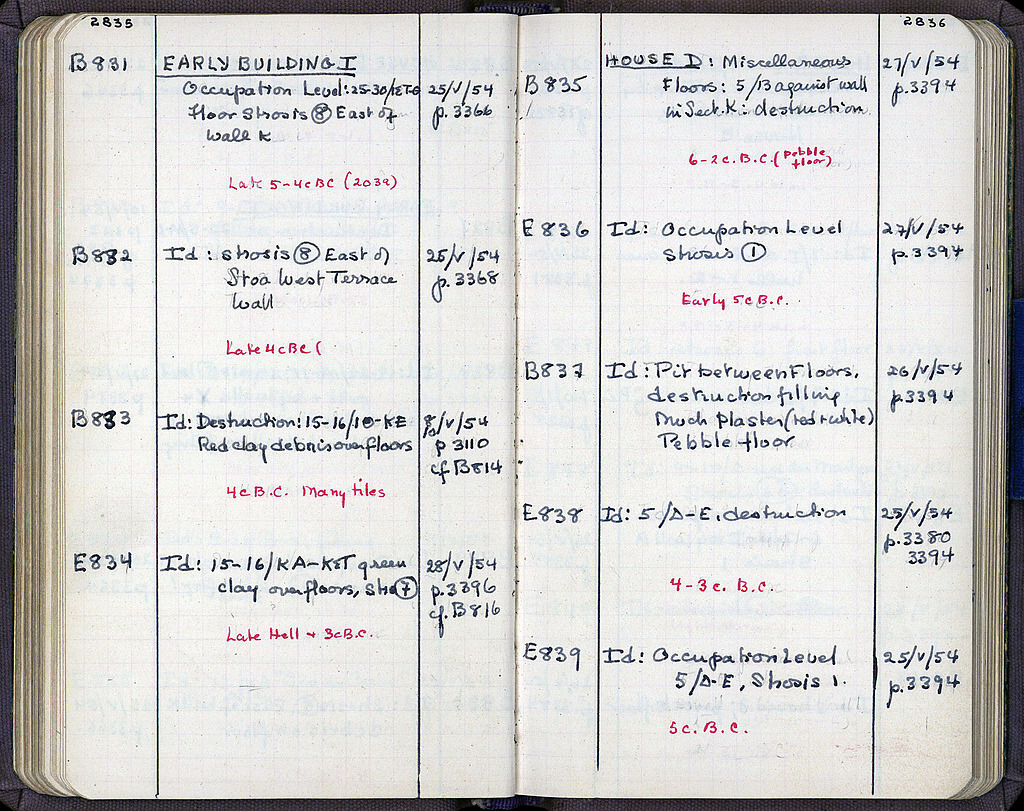 2835
B831 EARLY BUILDING I
Occupation Level: 25-30/ 25/V/54
floor Strosis ⑧ East of p.3366
wall K
Late 5-4cBC (2039)
B832 Id: strosis ⑧ East of 25/V/54
Stoa West Terrace p.3368
Wall
Late 4cBC (
B833 Id: Destruction: 15-16/10-KE 8/V/54
Red clay debris over floors p 3110
cf. B814
4c B.C. Many tiles
E834 Id: 15-16/KA-KST green 28/V/54
clay over floors, Stro ⑦ p.3396
cf. B816
Late Hell + 3cB.C.
2836
HOUSE D: Miscellaneous 27/V/54
B835 Floors: 5/B against wall p.3394
in Sect. K: destruction
6-2c.B.C. (Pebble
floor)
E836 Id: Occupation Level 27/V/54
strosis ① p.3394
Early 5c B.C.
B837 Id: Pit between Floors, 26/V/54
destruction filling p.3394
Much Plaster (red + white)
Pebble floor
E838 Id: 5/Δ-E, destruction 25/V/54
p.3380
3394
4-3c. B.C.
E839 Id: Occupation Level 25/V/54
5/Δ-E, Strosis 1. p.3394
5c. B.C.